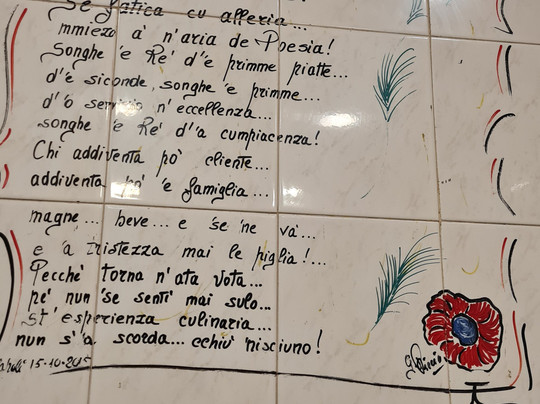 Se fatica cu alleria...
mmiezo a' n'aria de Poesia!
Songhe 'e Re' d''e primme piatte...
d''e siconde, songhe 'e primme...
d''o servizio n'eccellenza...
songhe 'e Re' d''a cumpiacenza!
Chi addiventa po' cliente...
addiventa po' 'e famiglia...
magne... beve... e 'se 'ne va'...
e 'a tristezza mai le piglia!...
Pecche' torna n'ata vota...
pe' nun 'se senti' mai sulo...
st' esperienza culinaria...
nun s''a scorda... cchiu' nisciuno!
15-10-2015